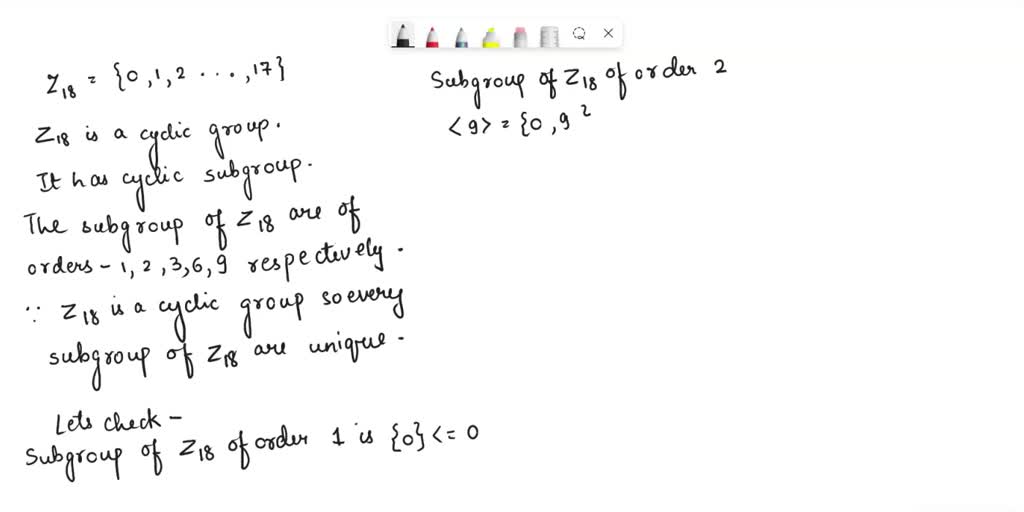 Z18 = {0, 1, 2 ..., 17}
Z18 is a cyclic group.
It has cyclic subgroup.
The subgroup of Z18 are of
orders - 1, 2, 3, 6, 9 respectively.
∵ Z18 is a cyclic group so every
subgroup of Z18 are unique.
Lets check -
Subgroup of Z18 of order 1 is {0} <= 0
Subgroup of Z18 of order 2
<9> = {0, 9 2